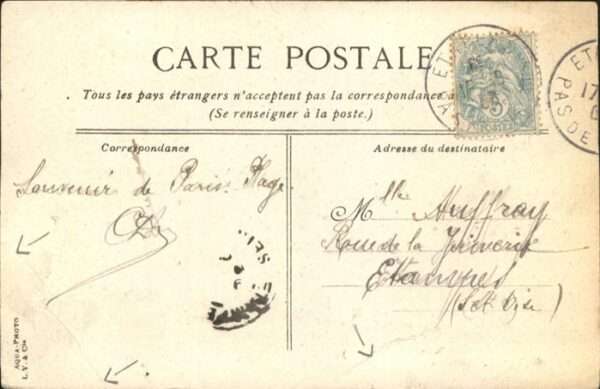 CARTE POSTALE
Tous les pays étrangers n'acceptent pas la correspondance a
(Se renseigner à la poste.)
Correspondance
Adresse du destinataire
Souvenir de Paris-Plage
Mlle Auffray
Rue de la Juiverie
Etampes
(S et Oise)
ET
17
PAS DE
AQUA-PHOTO
L. V. & Cie